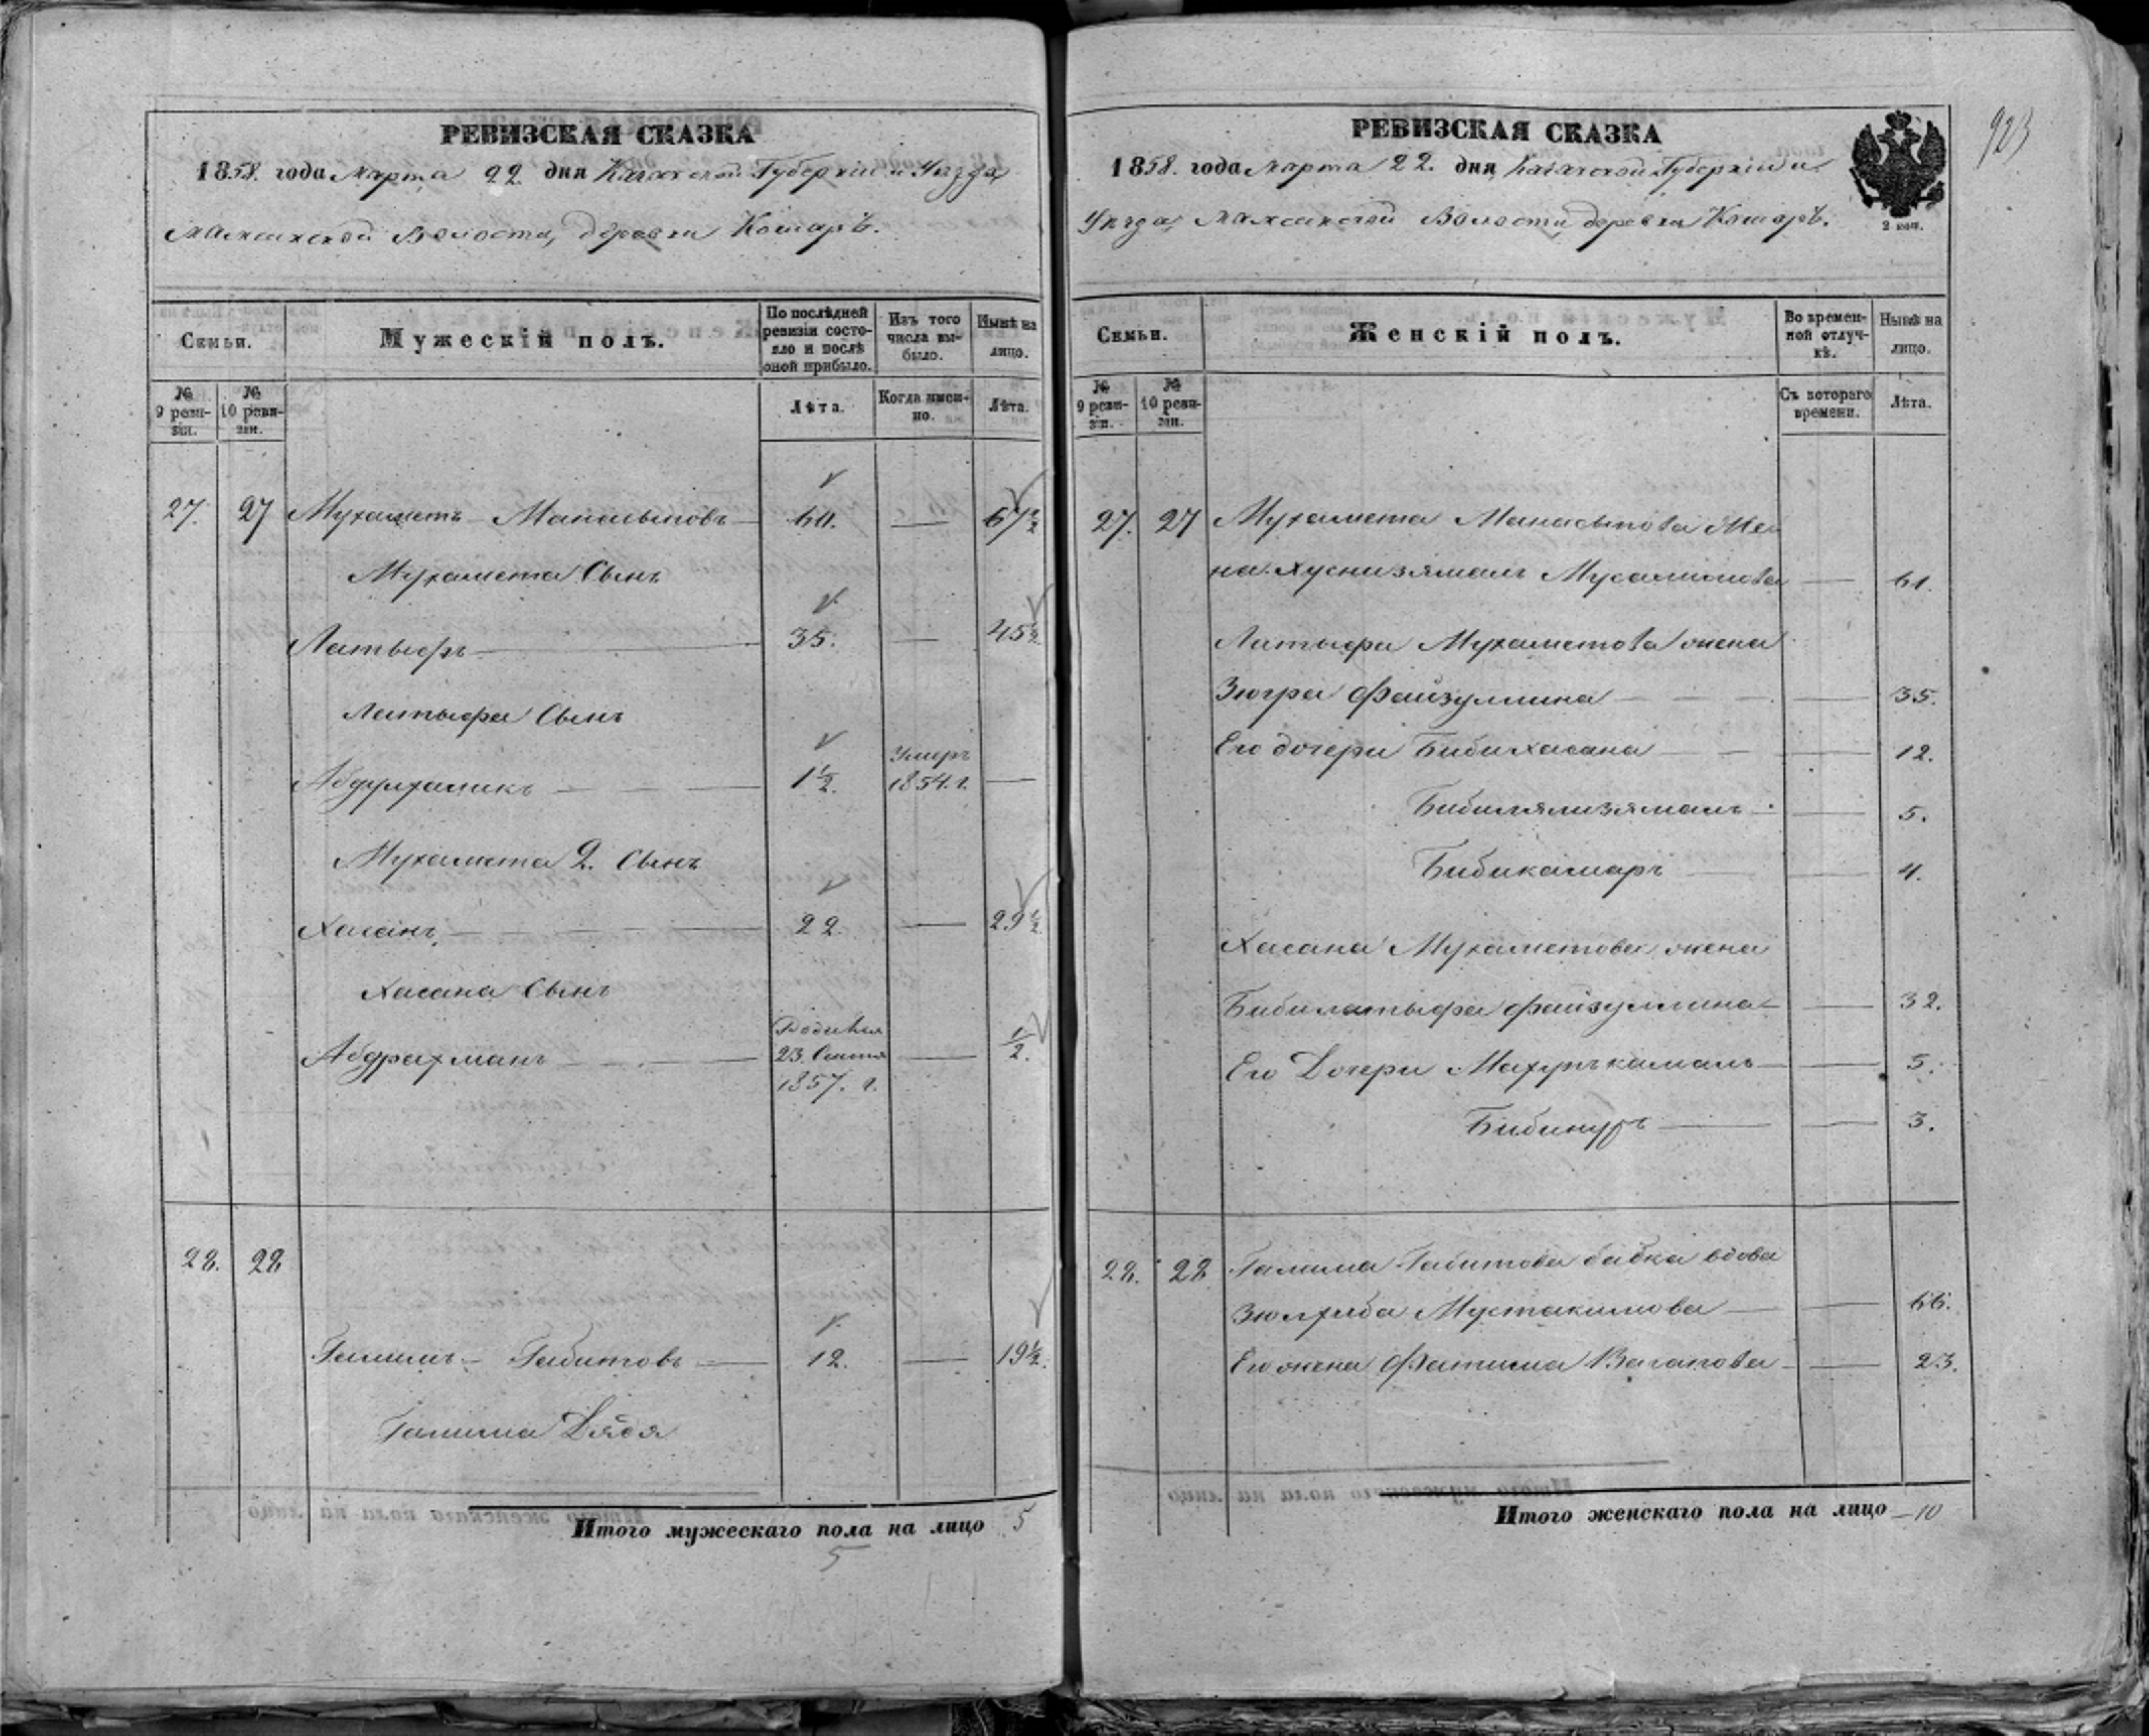 РЕВИЗСКАЯ СКАЗКА
1858. года Марта 22 дня Казанской Губерніи и Уѣзда
Мамсинской Волости, деревни Кошаръ.
Семьи.
Мужескій полъ.
По послѣдней ревизіи состояло и послѣ оной прибыло.
Изъ того числа выбыло.
Нынѣ на лицо.
№ 9 ревизіи.
№ 10 ревизіи.
Лѣта.
Когда именно.
Лѣта.
27. 27 Мухаметъ Манасыповъ 60. — 67½
Мухамета Сынъ
Латыфъ 35. — 45½
Латыфа Сынъ
Абдулхаликъ 1½. Умеръ 1854. г. —
Мухамета 2. Сынъ
Хасанъ 22. — 29½
Хасана Сынъ
Абдрахманъ Родився 23. Сентя 1857. г. — ½.
28. 28
Галимъ Габитовъ 12. — 19½.
Галима Дядя
Итого мужескаго пола на лицо 5
5
923
РЕВИЗСКАЯ СКАЗКА
1858. года Марта 22. дня Казанской Губерніи и
Уѣзда Мамсинской Волости деревни Кошаръ.
2 коп.
Семьи.
Женскій полъ.
Во временной отлучкѣ.
Нынѣ на лицо.
№ 9 ревизіи.
№ 10 ревизіи.
Съ котораго времени.
Лѣта.
27. 27 Мухамета Манасыпова Же
на Хуснизямалъ — 61.
Латыфа Мухаметова жена
Зюгра Файзуллина — 35.
Его дочери Бибихасана — 12.
Бибилялизямалъ — 5.
Бибикамаръ — 4.
Хасана Мухаметова жена
Бибилатыфа Файзуллина — 32.
Его Дочери Махупъкамалъ — 5.
Бибинуръ — 3.
28. 28 Галима Габитова бабка вдова
Зюлхаба Мустакимова — 66.
Его жена Фатима Вагапова — 23.
Итого женскаго пола на лицо 10